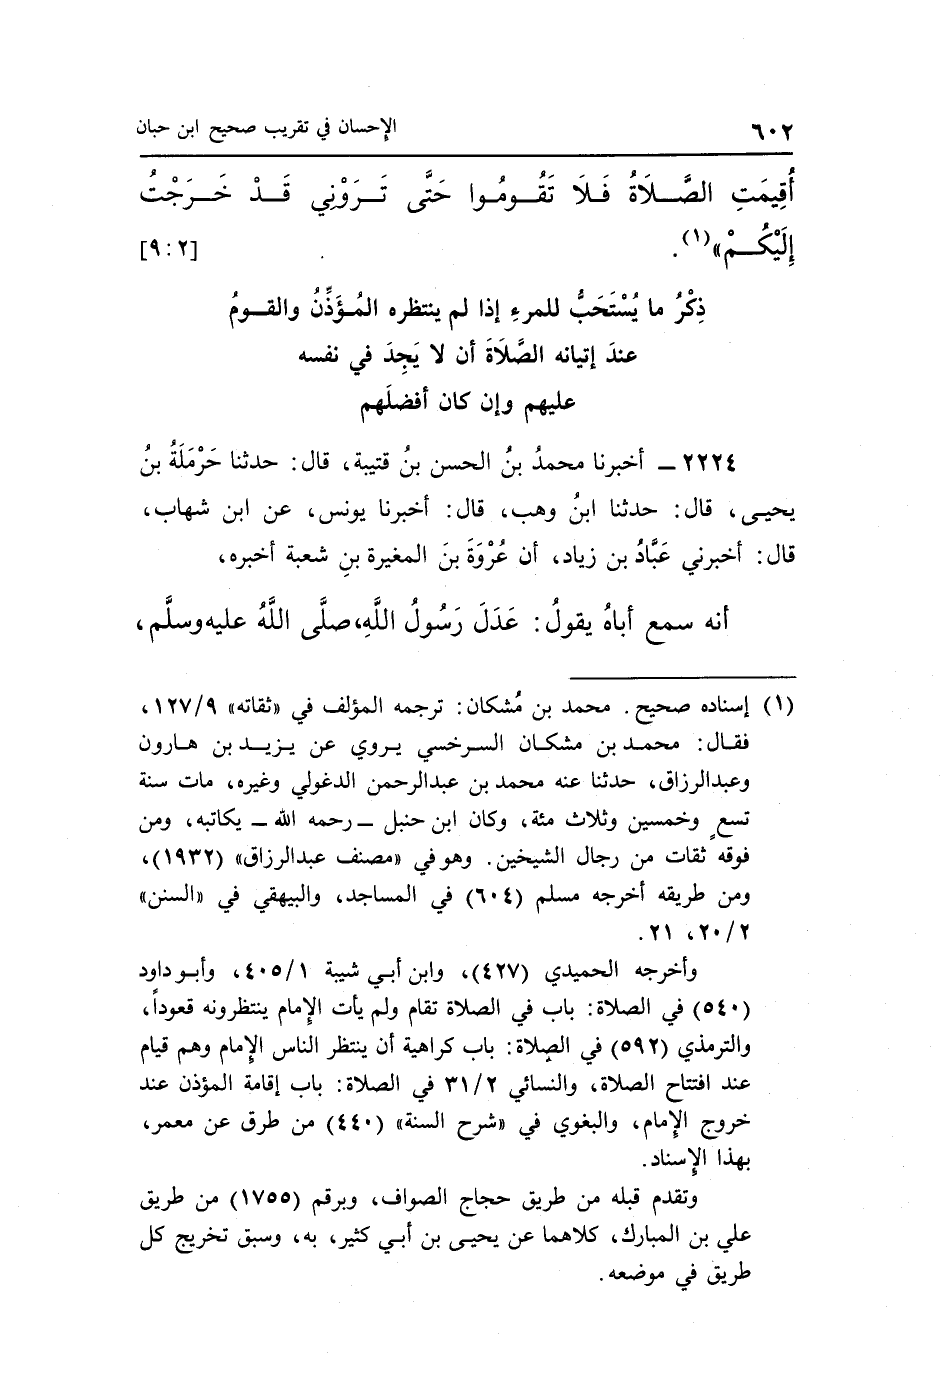 ٦٠٢ الإحسان في تقريب صحيح ابن حبان
أُقِيمَتِ الصَّلَاةُ فَلَا تَقُومُوا حَتَّى تَرَوْنِي قَدْ خَرَجْتُ
إِلَيْكُمْ»(١). [٢:٩]
ذِكْرُ ما يُسْتَحَبُّ للمرءِ إذا لم ينتظره المُؤَذِّنُ والقومُ
عندَ إتيانه الصَّلَاةَ أن لا يَجِدَ في نفسه
عليهم وإن كان أفضلَهم
٢٢٢٤ ــ أخبرنا محمدُ بنُ الحسن بنُ قتيبة، قال: حدثنا حَرْمَلَةُ بنُ
يحيى، قال: حدثنا ابنُ وهب، قال: أخبرنا يونس، عن ابن شهاب،
قال: أخبرني عَبَّادُ بن زياد، أن عُرْوَةَ بنَ المغيرة بنِ شعبة أخبره،
أنه سمع أباهُ يقولُ: عَدَلَ رَسُولُ اللَّهِ، صلَّى اللَّهُ عليه وسلَّم،
(١) إسناده صحيح. محمد بن مُشكان: ترجمه المؤلف في «ثقاته» ١٢٧/٩،
فقال: محمد بن مشكان السرخسي يروي عن يزيد بن هارون
وعبدالرزاق، حدثنا عنه محمد بن عبدالرحمن الدغولي وغيره، مات سنة
تسعٍ وخمسين وثلاث مئة، وكان ابن حنبل ــ رحمه الله ــ يكاتبه، ومن
فوقه ثقات من رجال الشيخين. وهو في «مصنف عبدالرزاق» (١٩٣٢)،
ومن طريقه أخرجه مسلم (٦٠٤) في المساجد، والبيهقي في «السنن»
٢٠/٢، ٢١.
وأخرجه الحميدي (٤٢٧)، وابن أبي شيبة ٤٠٥/١، وأبو داود
(٥٤٠) في الصلاة: باب في الصلاة تقام ولم يأت الإمام ينتظرونه قعوداً،
والترمذي (٥٩٢) في الصلاة: باب كراهية أن ينتظر الناس الإمام وهم قيام
عند افتتاح الصلاة، والنسائي ٣١/٢ في الصلاة: باب إقامة المؤذن عند
خروج الإمام، والبغوي في «شرح السنة» (٤٤٠) من طرق عن معمر،
بهذا الإسناد.
وتقدم قبله من طريق حجاج الصواف، وبرقم (١٧٥٥) من طريق
علي بن المبارك، كلاهما عن يحيى بن أبي كثير، به، وسبق تخريج كل
طريق في موضعه.